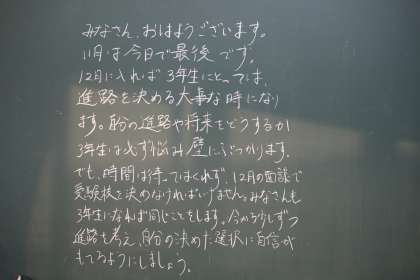 みなさん、おはようございます。
11月は今日で最後です。
12月に入れば3年生にとっては、
進路を決める大事な時になり
ます。自分の進路や将来をどうするか
3年生は必ず悩み壁にぶつかります。
でも、時間は待ってはくれず、12月の面談で
受験校を決めなければいけません。みなさんも
3年生になれば同じことをします。今から少しずつ
進路を考え、自分の決めた選択に自信が
もてるようにしましょう。